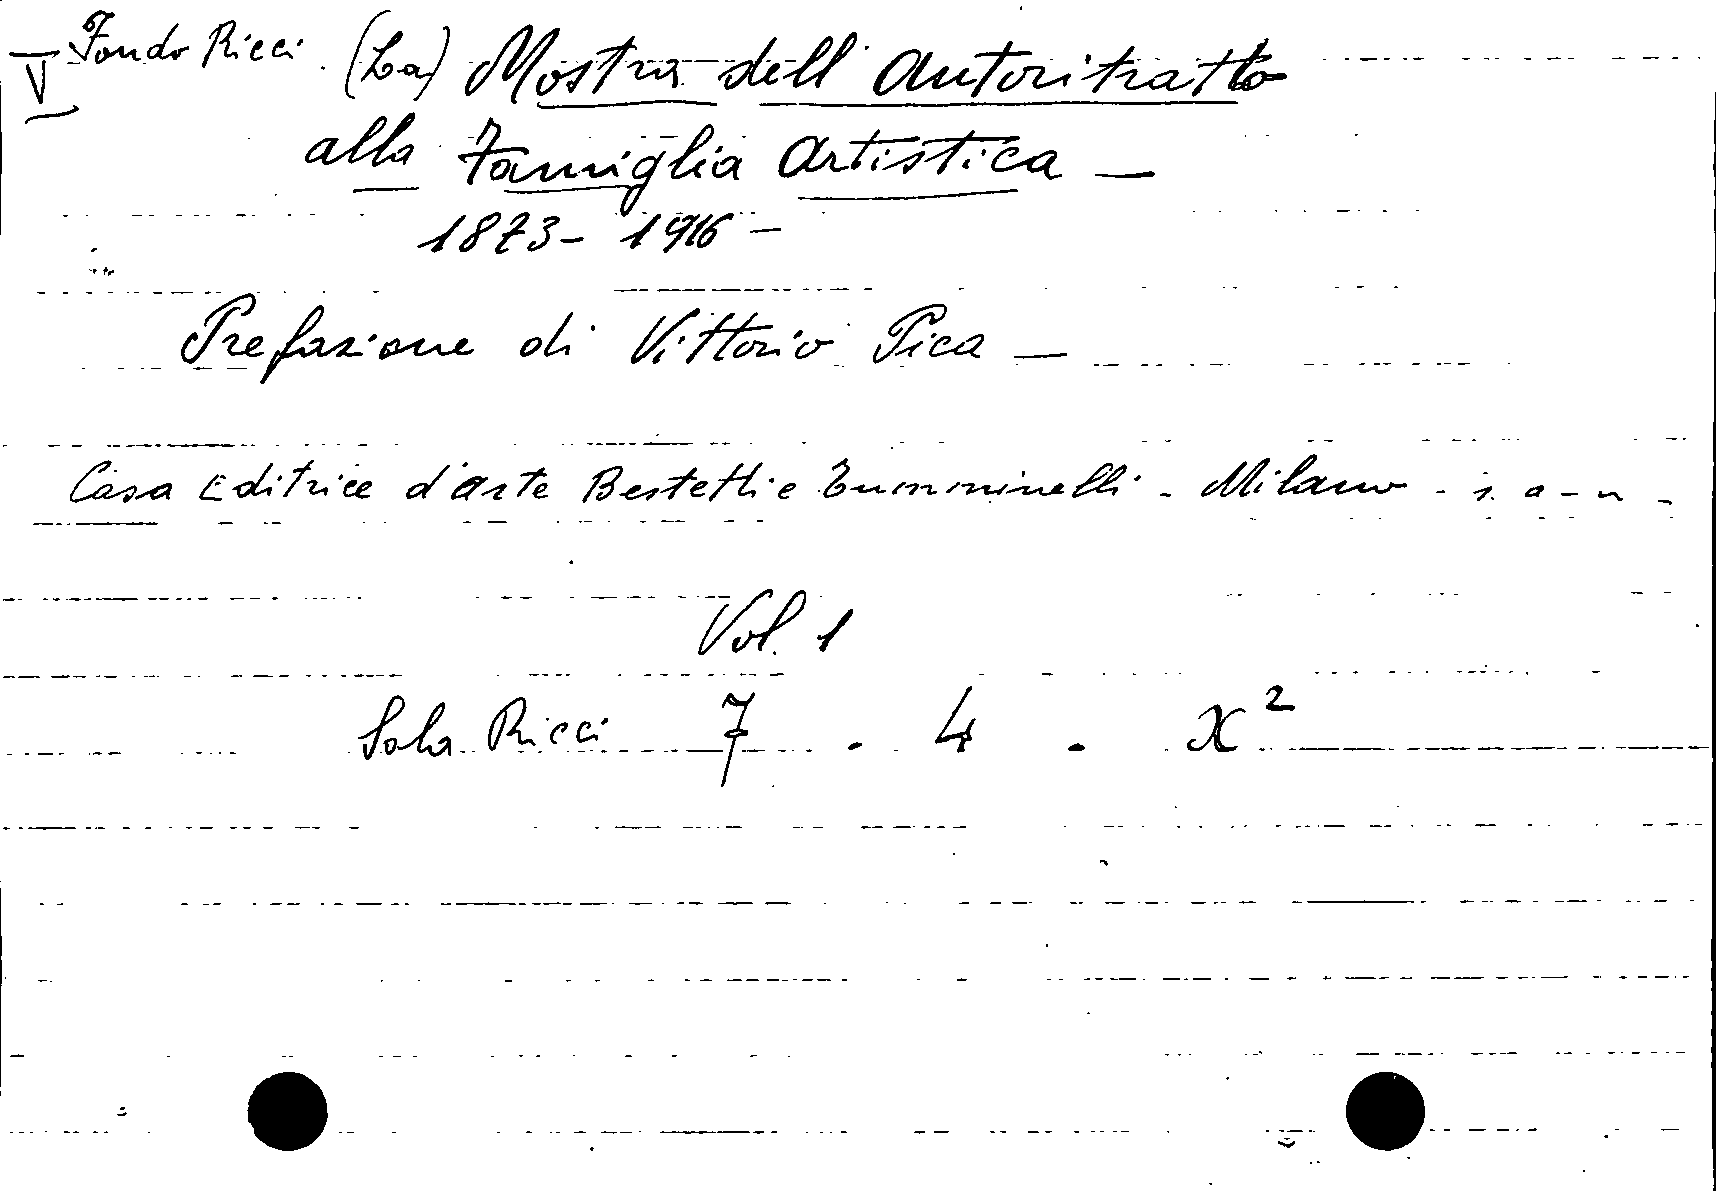 V Fondo Ricci. (La) Mostra dell'autoritratto
alla Famiglia Artistica —
1873 - 1916 -
Prefazione di Vittorio Pica —
Casa Editrice d'arte Bestetti e Tumminelli - Milano - s. a - n -
Vol. 1
Sala Ricci 7 . 4 . X²